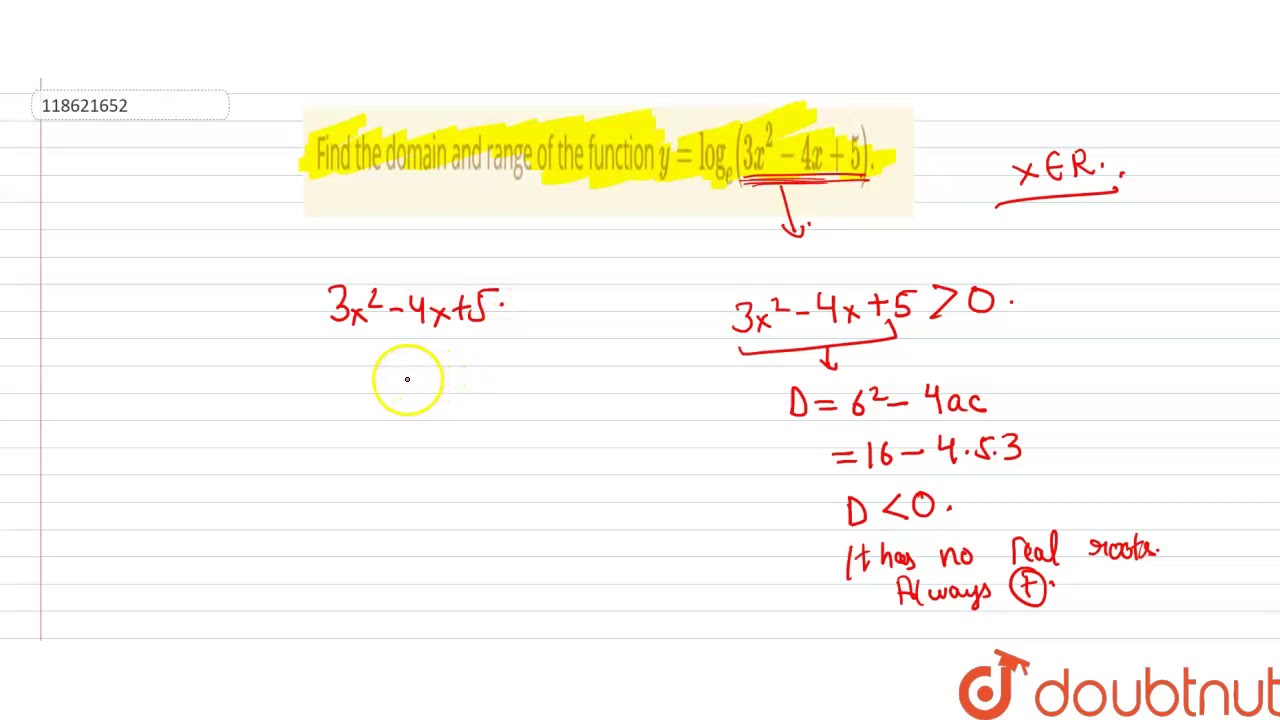 118621652
Find the domain and range of the function y = logₑ(3x² − 4x + 5).
x ∈ R.
3x² − 4x + 5.
3x² − 4x + 5 > 0.
D = b² − 4ac
= 16 − 4.5.3
D < 0.
It has no real roots.
Always +.
doubtnut